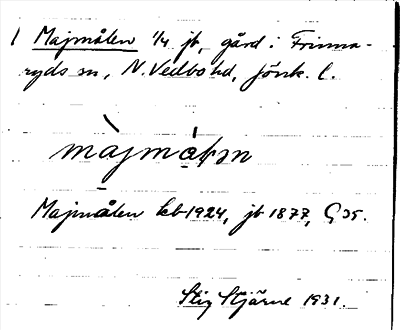 1 Majmålen 1/4 jb, gård i Frinna-
ryds sn, N. Vedbo hd, Jönk. l.
màjmåɫən
Majmålen kb 1924, jb 1877, G 35.
Stig Stjärne 1931.